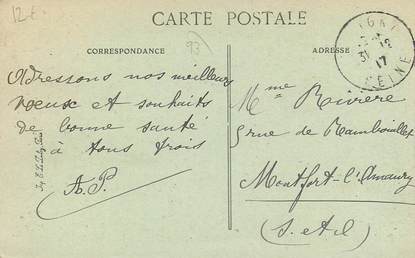 12€
93
CARTE POSTALE
CORRESPONDANCE
ADRESSE
31 12
17
SEINE
Adressons nos meilleurs
vœux et souhaits
de bonne santé
à tous trois
A.P.
Mme Rivière
5 rue de Rambouillet
Montfort-l'Amaury
(S. et O)